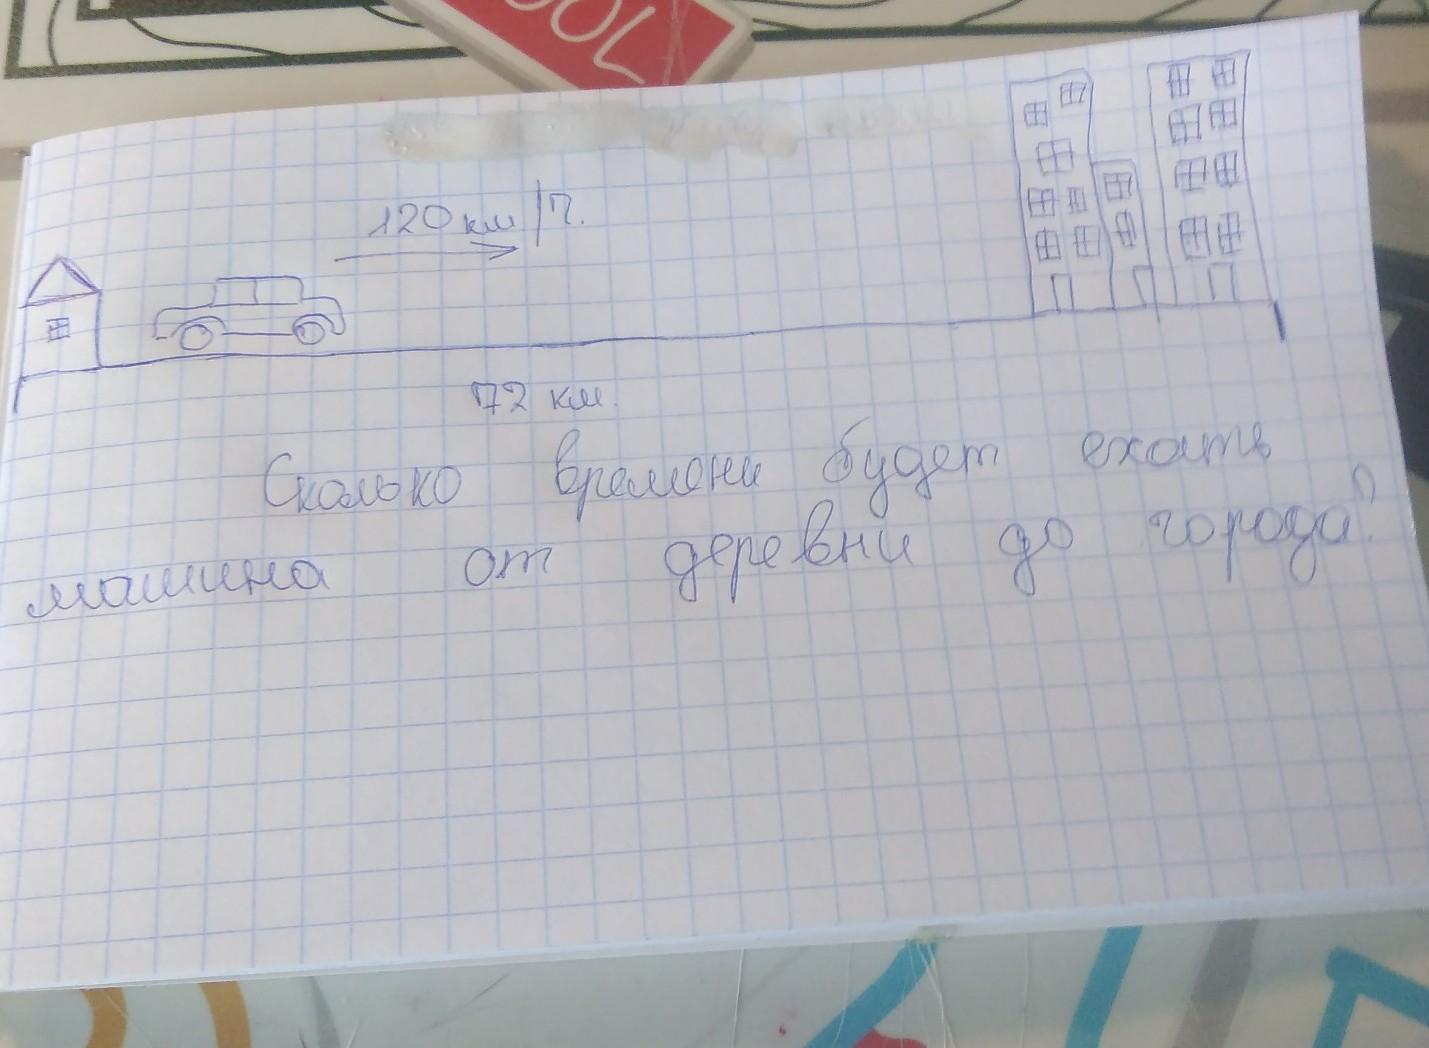 OOL
120 км/ч.
72 км.
Сколько времени будет ехать
машина от деревни до города?